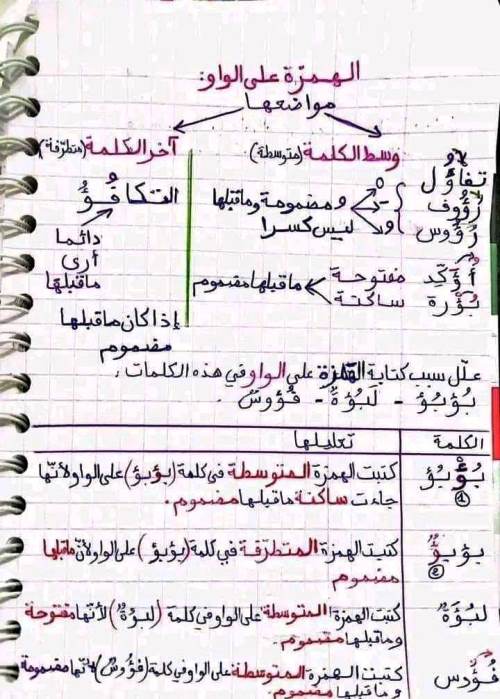 الهمزة على الواو:
مواضعها
وسط الكلمة (متوسطة)
تفاؤُل
رَؤُوف
رُؤُوس
مضمومة وما قبلها
ليس كسرا
أُؤَكِّد مفتوحة
بُؤْرة ساكنة
ما قبلها مضموم
آخر الكلمة (متطرفة)
التكافُؤُ
دائما
أرى
ما قبلها
إذا كان ما قبلها
مضموم
علّل سبب كتابة الهمزة على الواو في هذه الكلمات:
بُؤبُؤ - لَبُؤَةٌ - فُؤُوسٌ.
الكلمة
تعليلها
بُؤْبُؤ
①
كتبت الهمزة المتوسطة في كلمة (بؤبؤ) على الواو لأنّها
جاءت ساكنة ما قبلها مضموم.
بؤبؤٌ
②
كتبت الهمزة المتطرّفة في كلمة (بؤبؤ) على الواو لأنّ ما قبلها
مضموم
لبُؤَةٌ
كتبت الهمزة المتوسطة على الواو في كلمة (لبؤةٌ) لأنّها مفتوحة
وما قبلها مضموم.
فُؤُوس
كتبت الهمزة المتوسطة على الواو في كلمة (فؤُوسٌ) لأنّها مضمومة
وما قبلها مضموم.